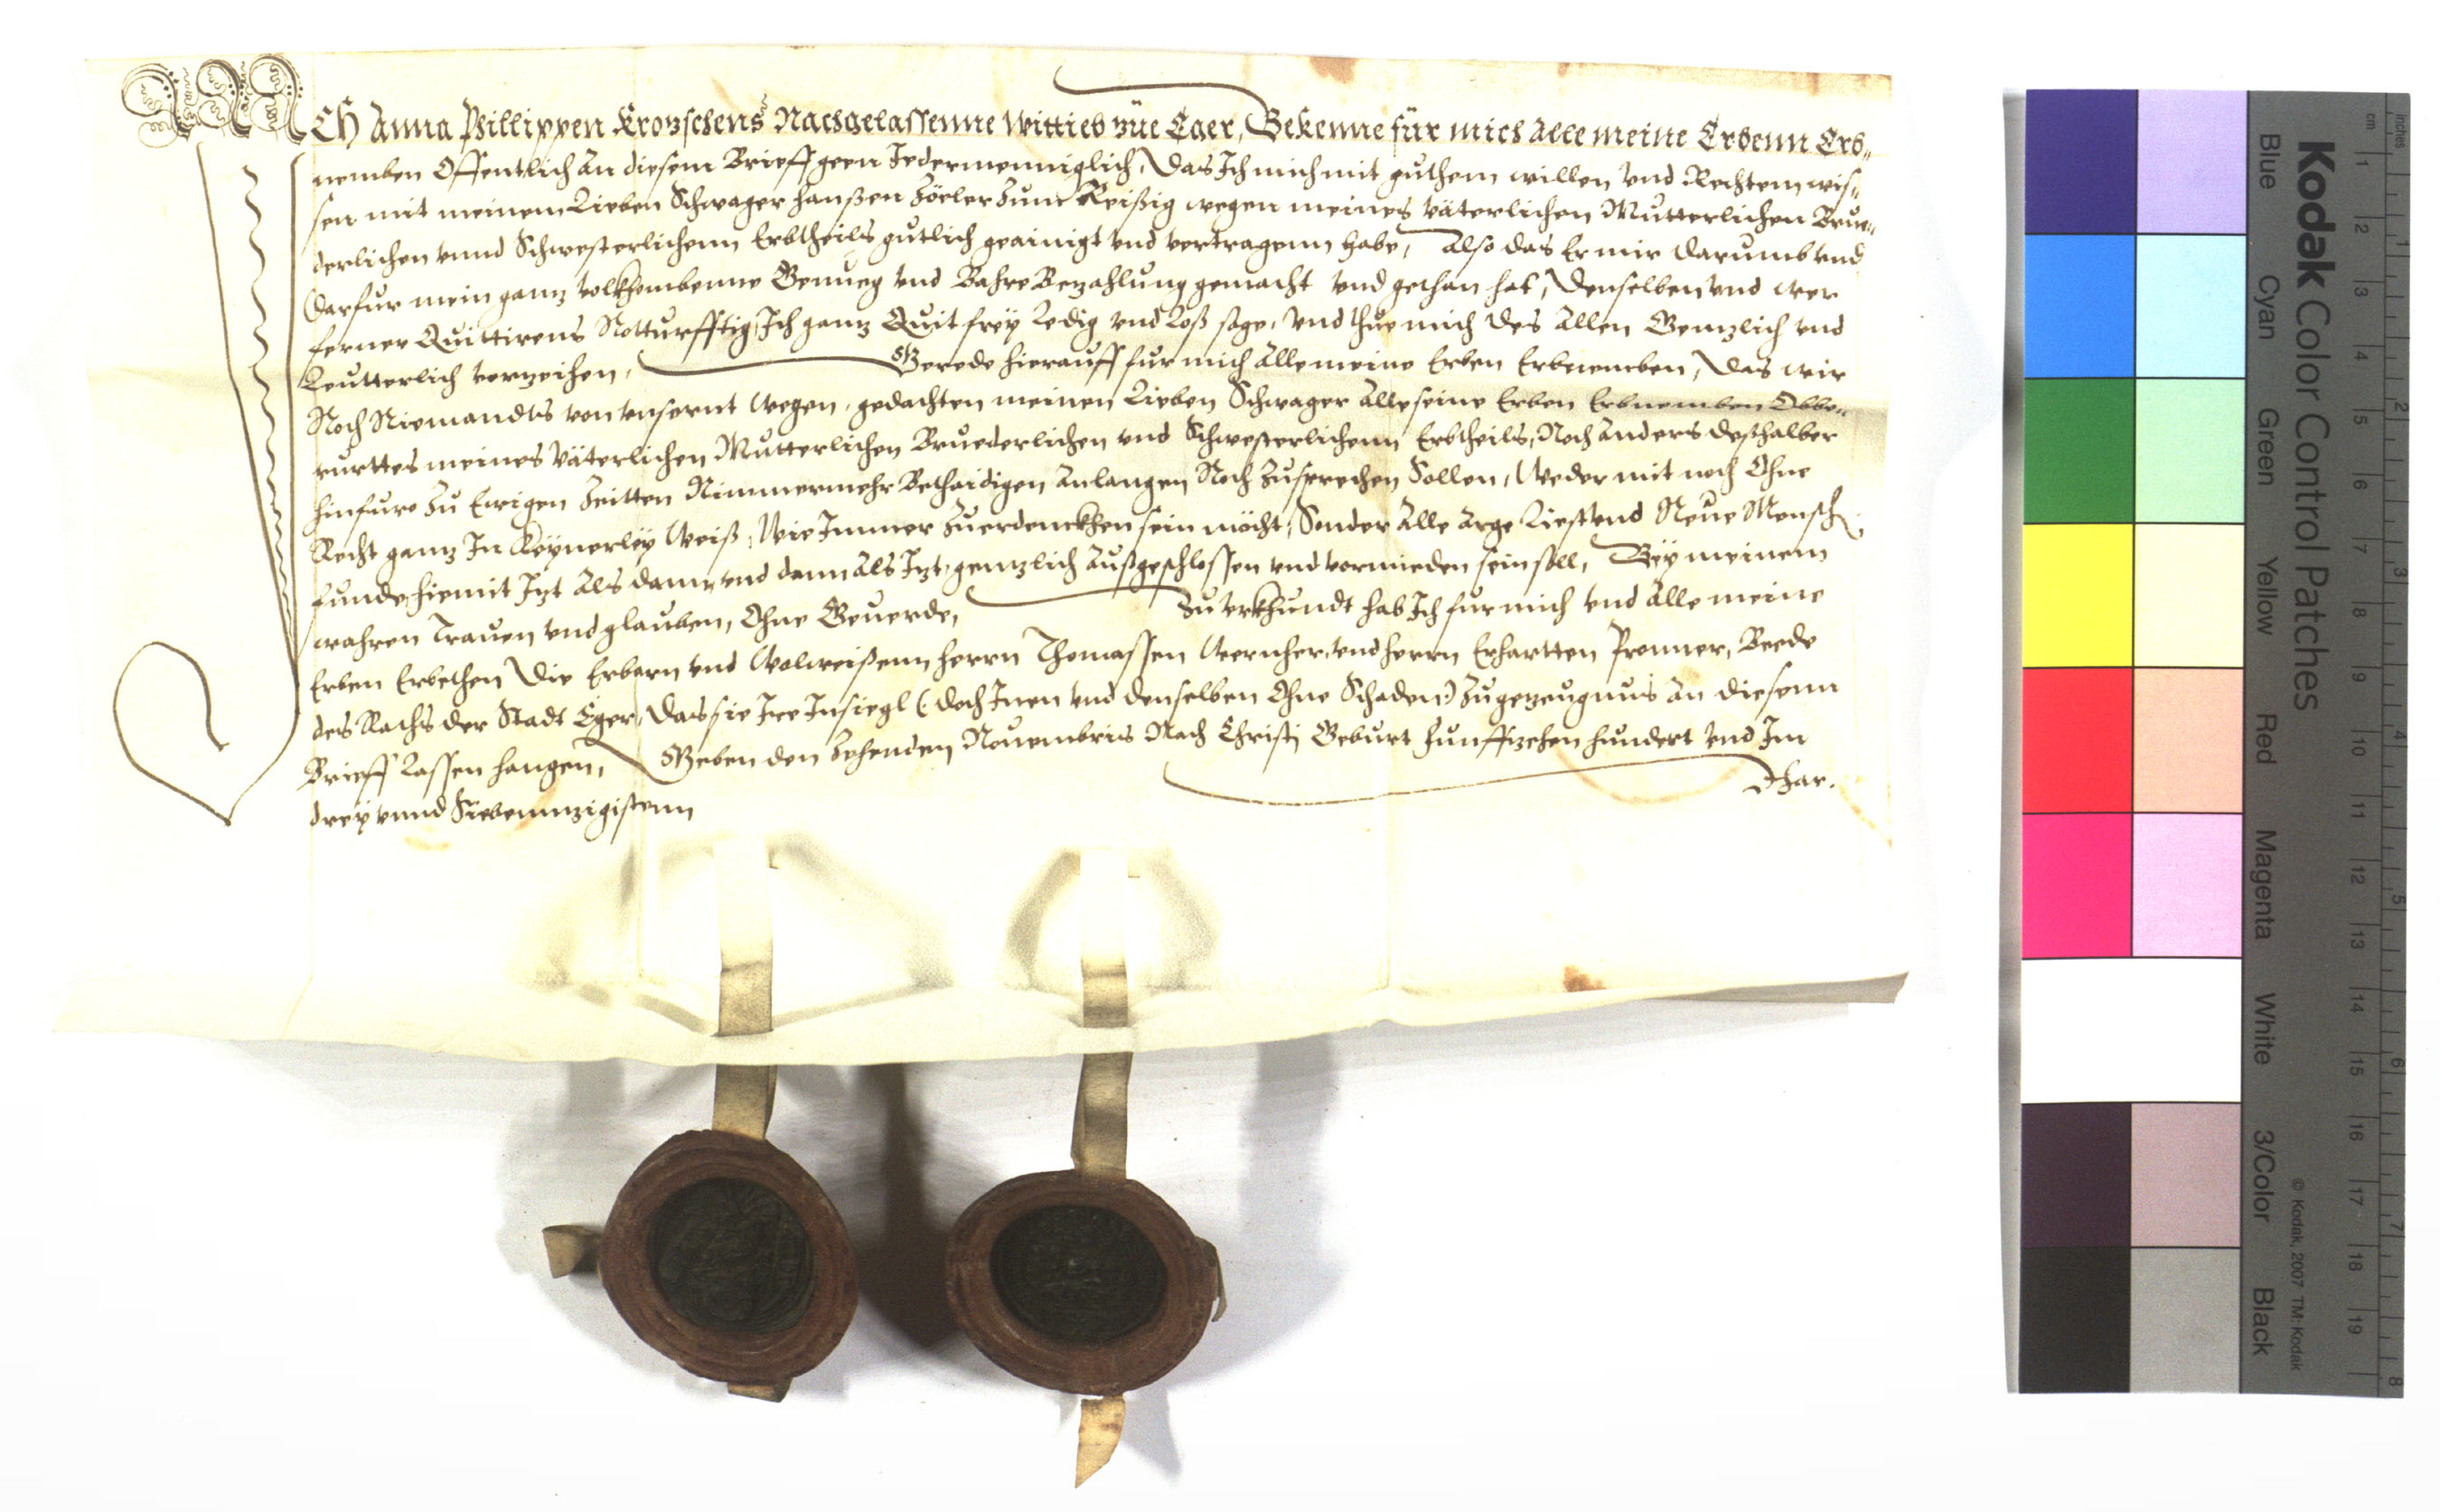 ICH Anna Phillippen Krotzschens Nachgelassenne Wittieb zue Eger, Bekenne für mich alle meine Erbenn Erb„
nemben Offentlich An diesem Brieff geen Jedermenniglich, Das Ich mich mit guthem willen vnd Rechtem wis„
sen mit meinem Lieben Schwager Hanßen Zöeler zum Reißig wegen meines väterlichen Mutterlichen Brue„
derlichen vnnd Schwesterlichenn Erbtheils gutlich geainigt vnd vertragenn habe, Also das Er mir darumb vnd
darfur mein ganz volkhombenne Genueg vnd Bahre Bezahlung gemacht vnd gethan hat, Denselben vnd wer
ferner Quittirens Notturfftig, Ich ganz Quit frey Ledig vnd Loß sage, vnd thue mich des Allen Genzlich vnd
Leutterlich verzeihen, Gerede hierauff fur mich Alle meine Erben Erbnemben, Das wir
Noch Niemandts von vnsernt wegen, gedachten meinen Lieben Schwager Alle seine Erben Erbnemben Obbe„
rurttes meines Väterlichen Mutterlichen Bruederlichen vnd Schwesterlichenn Erbtheils, Noch Anders deßhalber
hinfuro Zu Ewigen Zeitten Nimmermehr Bethaidigen Anlangen Noch Zusprechen Sollen, Weder mit noch Ohne
Recht ganz In Keynerley Weiß, Wie Immer Zuerdenckhen sein möcht, Sonder Alle Arge List vnd Neue Mensch
funde, hiemit Izt Als dann, vnd dann Als Izt, genzlich Außgeschlossen vnd vermieden sein soll, Bey meinem
wahren Trauen vnd glauben, Ohne Geuerde, Zu Vrkhundt hab Ich fur mich vnd Alle meine
Erben Erbethen Die Erbarn vnd Wolweißenn Herrn Thomassen Wernher, vnd Herrn Erhartten Pronner, Beede
des Raths der Stadt Eger, Das sie Ire Insiegl (: doch Inen vnd denselben Ohne Schaden :) Zugezeugnus An diesenn
Brieff Lassen hangen, Geben den Zehenden Nouembris Nach Christi Geburt Funffzehen hundert vnd Im
drey vnnd Siebennzigistenn Jhar.
Kodak Color Control Patches
© Kodak, 2007 TM: Kodak
Blue Cyan Green Yellow Red Magenta White 3/Color Black
cm 1 2 3 4 5 6 7 8 9 10 11 12 13 14 15 16 17 18 19
inches 1 2 3 4 5 6 7 8